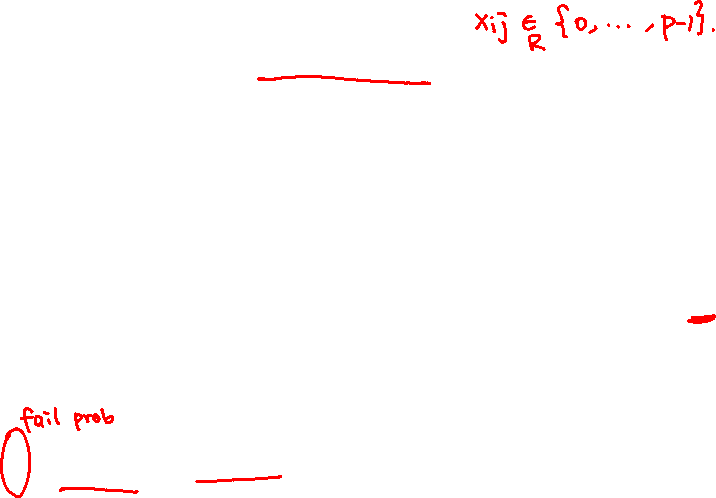 xij ∈R {0, ..., p-1}.
fail prob